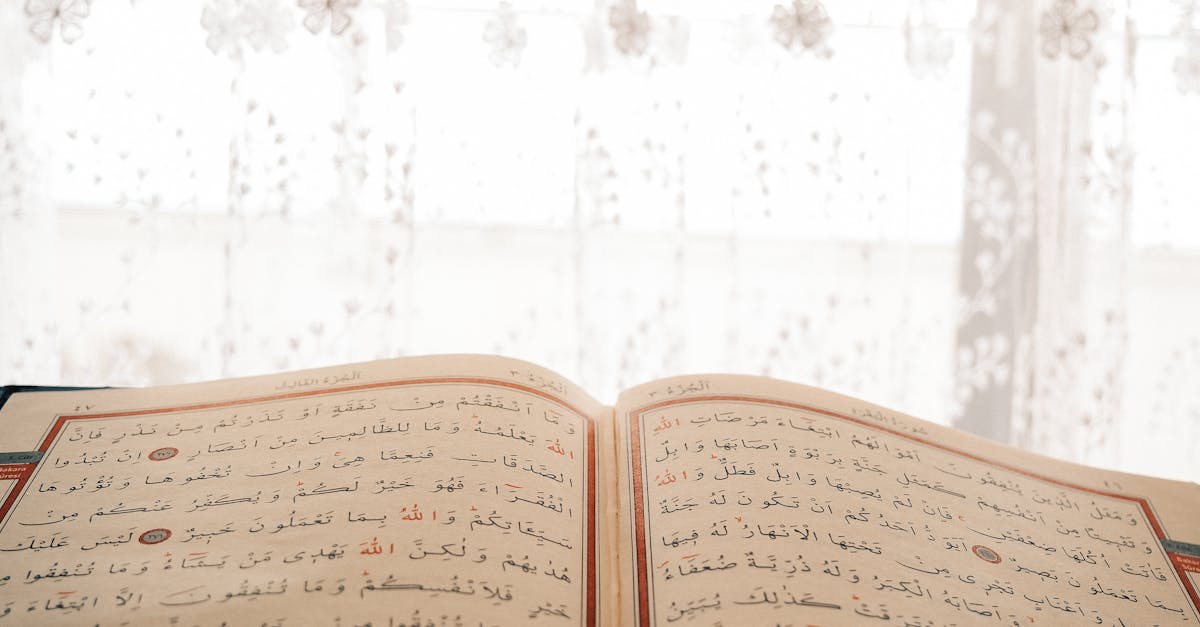 سُورَةُ الْبَقَرَةِ
اَلْجُزْءُ ٣
٤٦
وَمَثَلُ الَّذِينَ يُنْفِقُونَ اَمْوَالَهُمُ ابْتِغَٓاءَ مَرْضَاتِ اللّٰهِ
وَتَثْبِيتًا مِنْ اَنْفُسِهِمْ كَمَثَلِ جَنَّةٍ بِرَبْوَةٍ اَصَابَهَا وَابِلٌ
فَاٰتَتْ اُكُلَهَا ضِعْفَيْنِ فَاِنْ لَمْ يُصِبْهَا وَابِلٌ فَطَلٌّ وَاللّٰهُ
بِمَا تَعْمَلُونَ بَصِيرٌ ٢٦٥ اَيَوَدُّ اَحَدُكُمْ اَنْ تَكُونَ لَهُ جَنَّةٌ
وَاَعْنَابٍ تَجْرِي مِنْ تَحْتِهَا الْاَنْهَارُ لَهُ فِيهَا
وَاَصَابَهُ الْكِبَرُ وَلَهُ ذُرِّيَّةٌ ضُعَفَٓاءُ
كَذٰلِكَ يُبَيِّنُ
Bakara
Sûresi
اَلْجُزْءُ ٣
اَلْجُزْءُ الثَّالِثُ
٤٧
وَمَٓا اَنْفَقْتُمْ مِنْ نَفَقَةٍ اَوْ نَذَرْتُمْ مِنْ نَذْرٍ فَاِنَّ
اللّٰهَ يَعْلَمُهُ وَمَا لِلظَّالِمِينَ مِنْ اَنْصَارٍ ٢٧٠ اِنْ تُبْدُوا
الصَّدَقَاتِ فَنِعِمَّا هِيَ وَاِنْ تُخْفُوهَا وَتُؤْتُوهَا
الْفُقَرَٓاءَ فَهُوَ خَيْرٌ لَكُمْ وَيُكَفِّرُ عَنْكُمْ مِنْ
سَيِّـَٔاتِكُمْ وَاللّٰهُ بِمَا تَعْمَلُونَ خَبِيرٌ ٢٧١ لَيْسَ عَلَيْكَ
هُدٰيهُمْ وَلٰكِنَّ اللّٰهَ يَهْدِي مَنْ يَشَٓاءُ وَمَا تُنْفِقُوا مِنْ
خَيْرٍ فَلِاَنْفُسِكُمْ وَمَا تُنْفِقُونَ اِلَّا ابْتِغَٓاءَ
Bakara
Sûresi